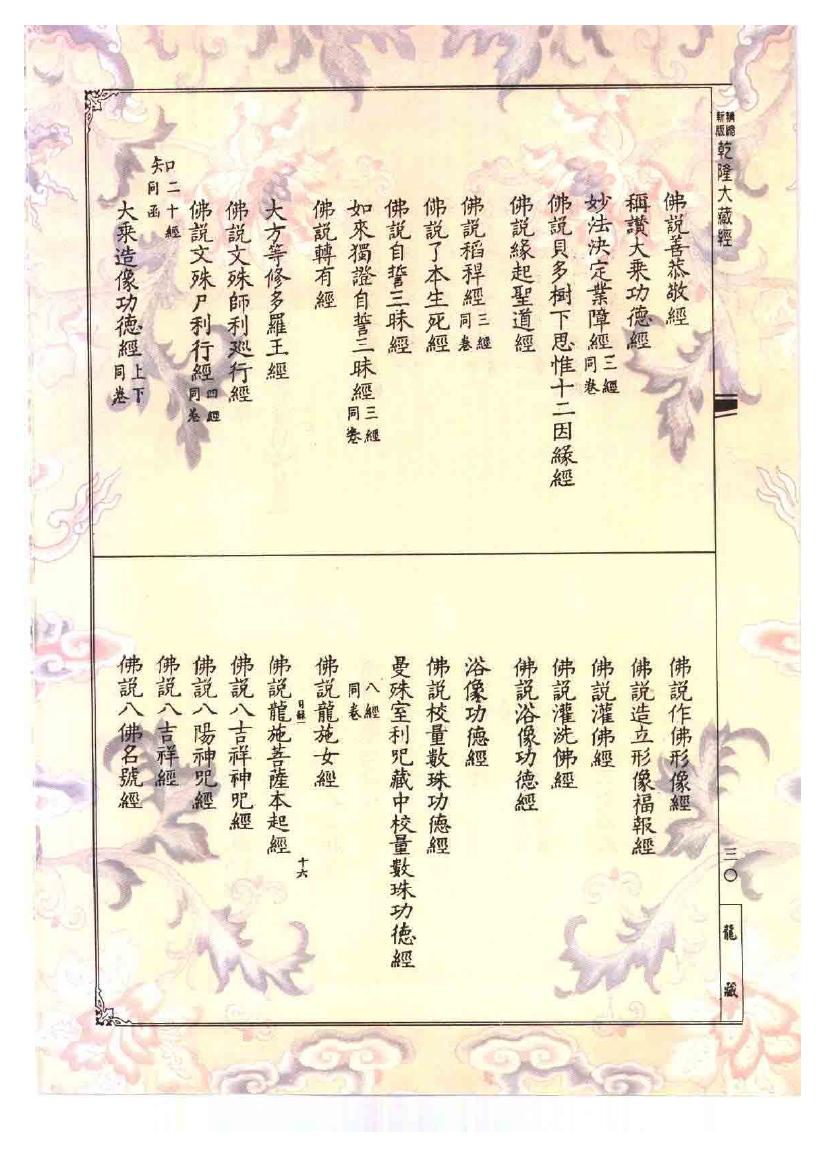 精縮新版
乾隆大藏經
佛説善恭敬經
稱讚大乘功德經
妙法決定業障經三經同卷
佛説貝多樹下思惟十二因緣經
佛説緣起聖道經
佛説稻稈經三經同卷
佛説了本生死經
佛説自誓三昧經
如來獨證自誓三昧經三經同卷
佛説轉有經
大方等修多羅王經
佛説文殊師利巡行經
佛説文殊尸利行經四經同卷
知二十經同函
大乘造像功德經上下同卷
佛説作佛形像經
佛説造立形像福報經
佛説灌佛經
佛説灌洗佛經
佛説浴像功德經
浴像功德經
佛説校量數珠功德經
曼殊室利呪藏中校量數珠功德經
八經同卷
佛説龍施女經
目録一
十六
佛説龍施菩薩本起經
佛説八吉祥神呪經
佛説八陽神呪經
佛説八吉祥經
佛説八佛名號經
三〇
龍藏